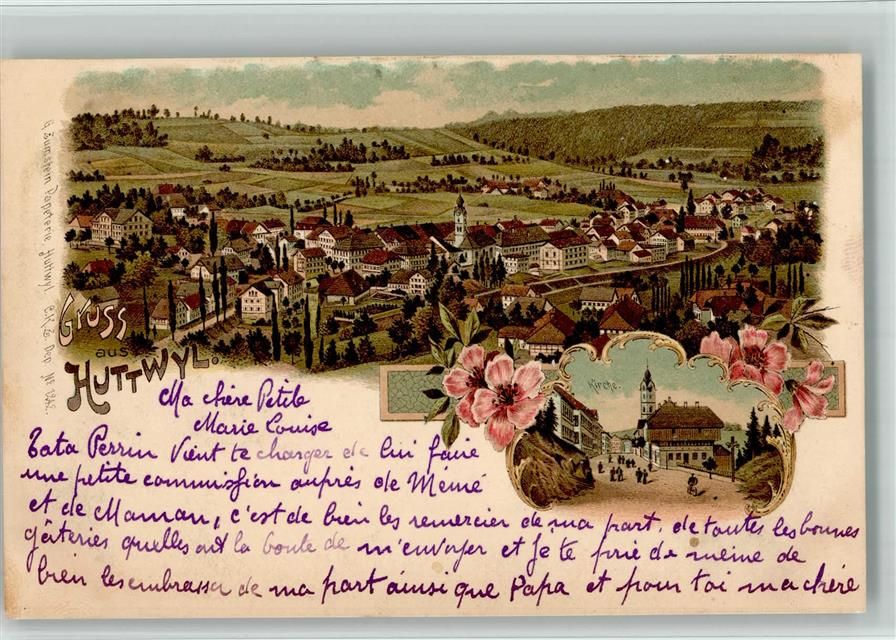 G. Zumstein Papeterie Huttwyl.
GRUSS
aus
HUTTWYL.
Kirche.
Ma chère Petite
Marie Louise
Tata Perrin vient te charger de lui faire
une petite commission auprès de Mémé
et de Maman, c'est de bien les remercier de ma part, de toutes les bonnes
gâteries quelles ont la bonte de m'envoyer et je te prie de même de
bien les embrasser de ma part ainsi que Papa et pour toi ma chère